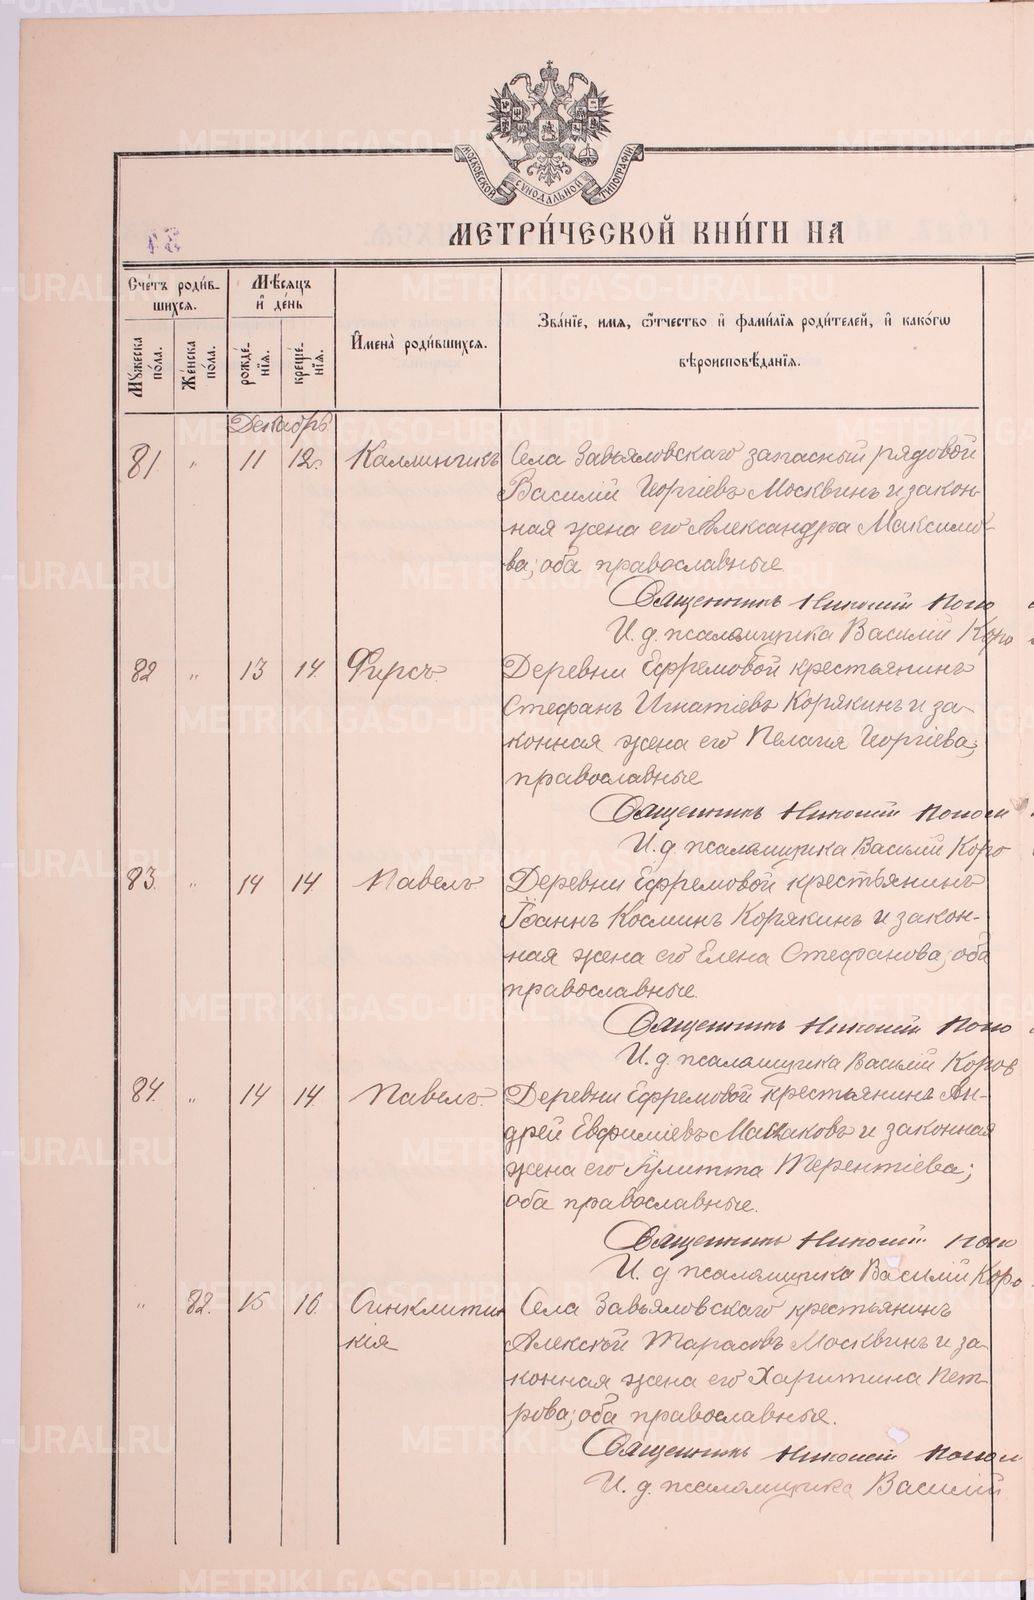 МОСКОВСКОЙ СѴНОДАЛЬНОЙ ТИПОГРАФІИ
МЕТРИ́ЧЕСКОЙ КНИ́ГИ НА
Сче́тъ роди́в-
шихся.
Мꙋ́жеска по́ла.
Же́нска по́ла.
Мѣ́сяцъ
и҆ де́нь
рожде́-
нїѧ.
креще́-
нїѧ.
И҆мена̀ роди́вшихся.
Зва́нїе, имѧ, ѻ҆́тчество и҆ фами́лїѧ роди́телей, и҆ како́гѡ
вѣроисповѣ́данїѧ.
Декабрь
81 " 11 12. Каллиникъ Села Завьяловскаго запасный рядовой
Василій Георгіевъ Москвинъ и закон-
ная жена его Александра Максимо-
ва; оба православные
Священникъ Николай Попо
И. д. псаломщика Василій Коро
82 " 13 14. Фирсъ. Деревни Ефремовой крестьянинъ
Стефанъ Игнатіевъ Корякинъ и за-
конная жена его Пелагія Георгіева;
православные
Священникъ Николай Попов
И. д. псаломщика Василій Коро
83. " 14 14 Павелъ Деревни Ефремовой крестьянинъ
Іоаннъ Косминъ Корякинъ и закон-
ная жена его Елена Стефанова; оба
православные.
Священникъ Николай Попо
И. д. псаломщика Василій Коров
84. " 14 14. Павелъ. Деревни Ефремовой крестьянинъ Ан-
дрей Евфиміевъ и законная
жена его Іулитта Терентіева;
оба православные.
Священникъ Николай Попо
И. д. псаломщика Василій Коро
" 82. 15 16. Синклити Села Завьяловскаго крестьянинъ
кія Алексѣй Тарасовъ Москвинъ и за-
конная жена его Харитина Пет-
рова; оба православные.
Священникъ Николай Попов
И. д. псаломщика Василій
METRIKI.GASO-URAL.RU